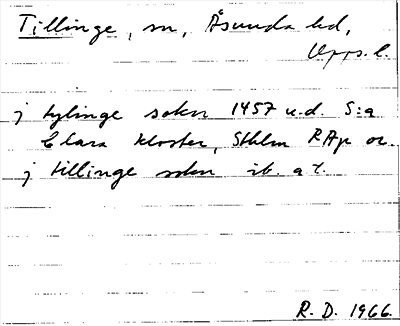 Tillinge, sn, Åsunda hd,
Upps. l.
j tylinge sokn 1457 u.d. S:a
Clara kloster, Sthlm RAp or.
j tillinge sokn ib. a t.
R. D. 1966.